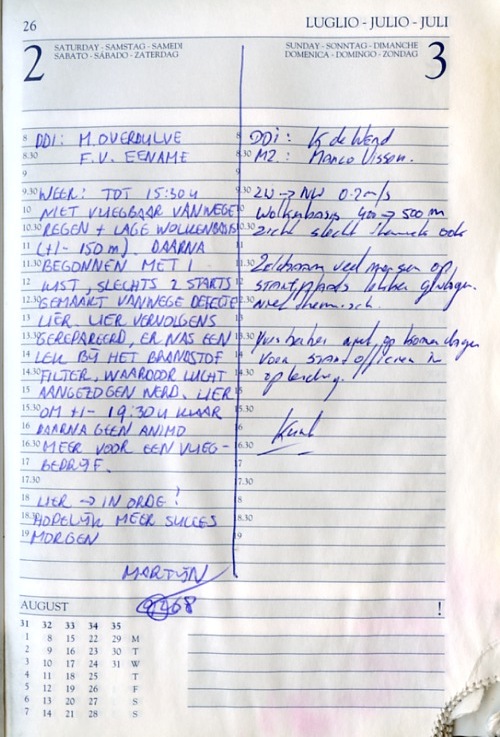 26
LUGLIO - JULIO - JULI
2
SATURDAY - SAMSTAG - SAMEDI
SABATO - SÁBADO - ZATERDAG
8 DDI: M. OVERDULVE
8.30 F.V. EENAME
9
9.30 WEER: TOT 15:30 u
10 NIET VLIEGBAAR VANWEGE
10.30 REGEN + LAGE WOLKENBASIS
11 (+/- 150 m). DAARNA
11.30 BEGONNEN MET 1
12 LIJST, SLECHTS 2 STARTS
12.30 GEMAAKT VANWEGE DEFECTE
13 LIER. LIER VERVOLGENS
13.30 GEREPAREERD, ER WAS EEN
14 LEK BIJ HET BRANDSTOF
14.30 FILTER, WAARDOOR LUCHT
15 AANGEZOGEN WERD. LIER
15.30 OM +/- 19:30 u KLAAR
16 DAARNA GEEN ANIMO
16.30 MEER VOOR EEN VLIEG-
17 BEDRIJF.
17.30
18 LIER → IN ORDE!
18.30 HOPELIJK MEER SUCCES
19 MORGEN
MARTIJN
SUNDAY - SONNTAG - DIMANCHE
DOMENICA - DOMINGO - ZONDAG
3
8 DDI: K de Wend
8.30 M2: Marco Visson.
9
9.30 ZW → NW 0-2 m/s
10 Wolkenbasis 400 → 500 m
10.30 zicht slecht thermiek ook
11
11.30 veel mensen op
12 startplaats lekker gevlogen.
12.30 niet thermisch
13
13.30 op komen dagen
14 voor startofficieren in
14.30 opleiding.
15.30
16
16.30
17
8
19
AUGUST
!
31 32 33 34 35
1 8 15 22 29 M
2 9 16 23 30 T
3 10 17 24 31 W
4 11 18 25 T
5 12 19 26 F
6 13 20 27 S
7 14 21 28 S